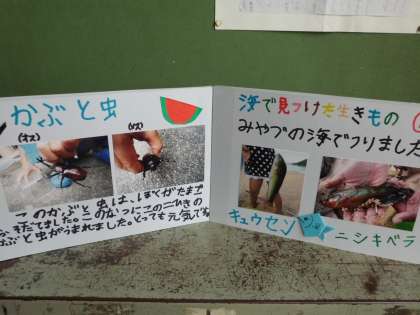 かぶと虫
(オス)
(メス)
このかぶと虫は、ぼくがたまご
そだてました。このかつにこの二ひきの
かぶと虫がうまれました。とっても元気です
海で見つけた生きもの
みやづの海でつりました
キュウセン
ニシキベラ